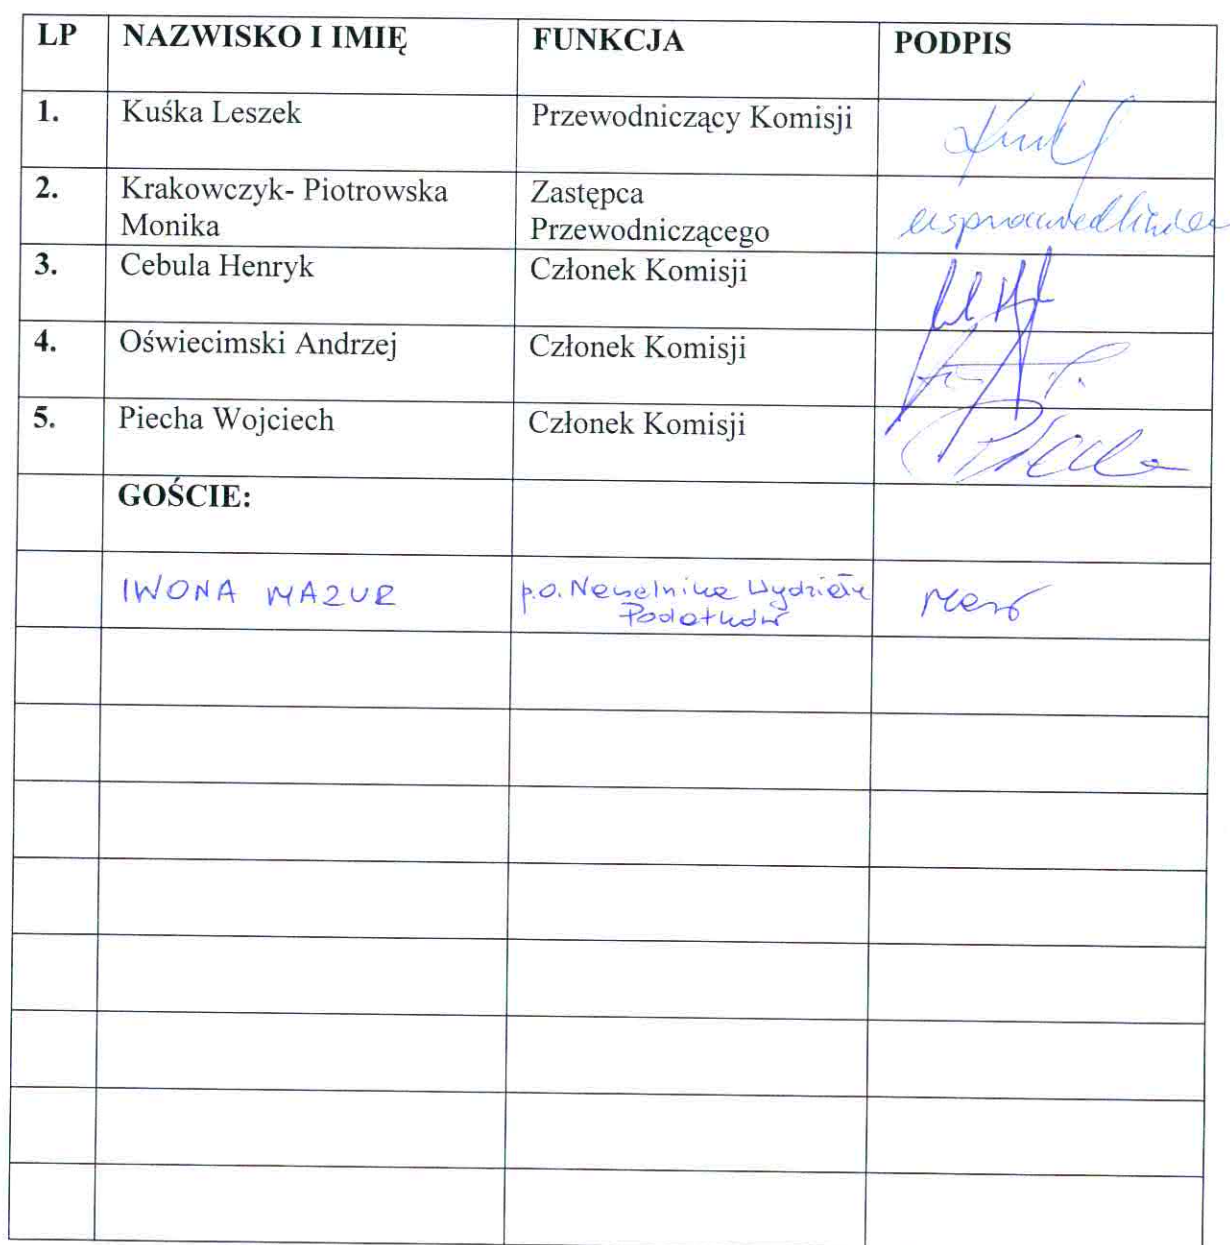 LP NAZWISKO I IMIĘ FUNKCJA PODPIS
1. Kuśka Leszek Przewodniczący Komisji
2. Krakowczyk- Piotrowska Zastępca
Monika Przewodniczącego
3. Cebula Henryk Członek Komisji
4. Oświecimski Andrzej Członek Komisji
5. Piecha Wojciech Członek Komisji
GOŚCIE:
IWONA MAZUR p.o. Naczelnika Wydziału
Podatków